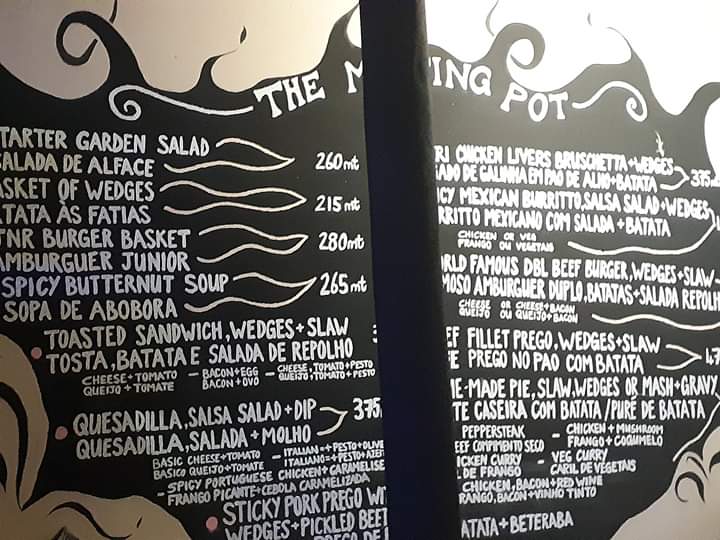 THE M TING POT
TARTER GARDEN SALAD
SALADA DE ALFACE
260mt
ASKET OF WEDGES
TATA ÀS FATIAS
215mt
JNR BURGER BASKET
AMBURGUER JUNIOR
280mt
SPICY BUTTERNUT SOUP
SOPA DE ABOBORA
265mt
TOASTED SANDWICH, WEDGES + SLAW
TOSTA, BATATA E SALADA DE REPOLHO
CHEESE + TOMATO - BACON + EGG - CHEESE, TOMATO + PESTO
QUEIJO + TOMATE BACON + OVO QUEIJO, TOMATO + PESTO
QUESADILLA, SALSA SALAD + DIP
QUESADILLA, SALADA + MOLHO
375
BASIC CHEESE + TOMATO - ITALIAN = + PESTO + OLIVE
BASICO QUEIJO + TOMATE ITALIANO = + PESTO + AZEI
- SPICY PORTUGUESE CHICKEN + CARAMELISE
FRANGO PICANTE + CEBOLA CARAMELIZADA
STICKY PORK PREGO WI
WEDGES + PICKLED BEET
PREGO DE
RI CHICKEN LIVERS BRUSCHETTA + WEDGES
GADO DE GALINHA EM PAO DE ALHO + BATATA
375
ICY MEXICAN BURRITTO, SALSA SALAD + WEDGES
RRITTO MEXICANO COM SALADA + BATATA
CHICKEN OR VEG
FRANGO OU VEGETAIS
RLD FAMOUS DBL BEEF BURGER, WEDGES + SLAW
MOSO AMBURGUER DUPLO, BATATAS + SALADA REPOL
CHEESE OR CHEESE + BACON
QUEIJO OU QUEIJO + BACON
EF FILLET PREGO, WEDGES + SLAW
FE PREGO NO PAO COM BATATA
ME-MADE PIE, SLAW, WEDGES OR MASH + GRAVY
TE CASEIRA COM BATATA / PURÉ DE BATATA
PEPPERSTEAK - CHICKEN + MUSHROOM
EEF COMPIMENTO SECO FRANGO + COGUMELO
ICKEN CURRY - VEG CURRY
L DE FRANGO CARIL DE VEGETAIS
CHICKEN, BACON + RED WINE
RANGO, BACON + VINHO TINTO
ATATA + BETERABA